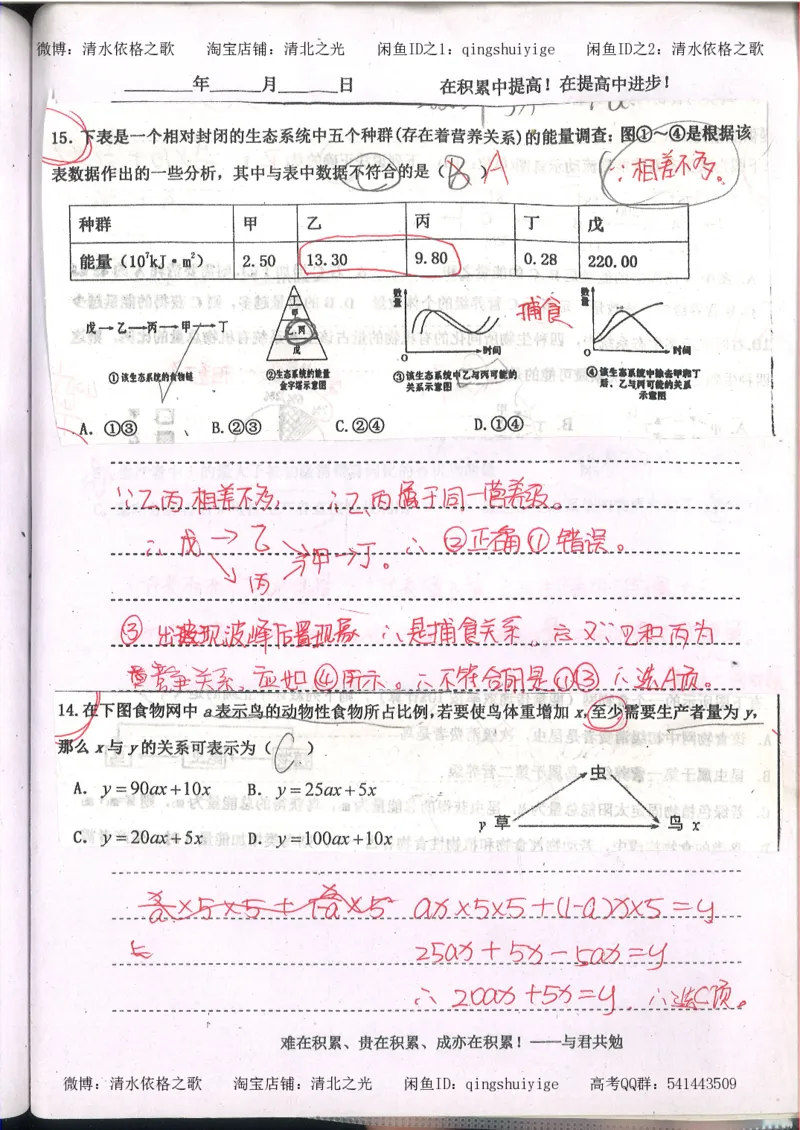 微博：清水依格之歌 淘宝店铺：清北之光 闲鱼ID之1：qingshuiyige 闲鱼ID之2：清水依格之歌
年 月 日 在积累中提高！在提高中进步！
15. 下表是一个相对封闭的生态系统中五个种群(存在着营养关系)的能量调查；图①～④是根据该
表数据作出的一些分析，其中与表中数据不符合的是（B）A
∵相差不多。
种群 甲 乙 丙 丁 戊
能量（10⁷kJ·m²） 2.50 13.30 9.80 0.28 220.00
戊→乙→丙→甲→丁
①该生态系统的食物链
丁
甲
乙.丙
戊
②生态系统的能量
金字塔示意图
数量
捕食
O 时间
③该生态系统中乙与丙可能的
关系示意图
数量
O 时间
④该生态系统中除去甲和丁
后，乙与丙可能的关系
示意图
A. ①③ B.②③ C.②④ D.①④
∵乙、丙相差不多， ∴乙、丙属于同一营养级。
∴ 戊→乙
丙
甲→丁。
∴ ②正确①错误。
③ 出现波峰后置现象 ∴是捕食关系 又∵乙和丙为
竞争关系，应如④所示。∴不符合的是①③ ∴选A项。
14. 在下图食物网中 a 表示鸟的动物性食物所占比例，若要使鸟体重增加 x，至少需要生产者量为 y，
那么 x 与 y 的关系可表示为（C）
A. y=90ax+10x B. y=25ax+5x
C. y=20ax+5x D. y=100ax+10x
虫
y 草
鸟 x
ax×5×5+(1-a)x×5=y
25ax+5x-5ax=y
∴ 20ax+5x=y. ∴选C项。
难在积累、贵在积累、成亦在积累！——与君共勉
微博：清水依格之歌 淘宝店铺：清北之光 闲鱼ID：qingshuiyige 高考QQ群：541443509